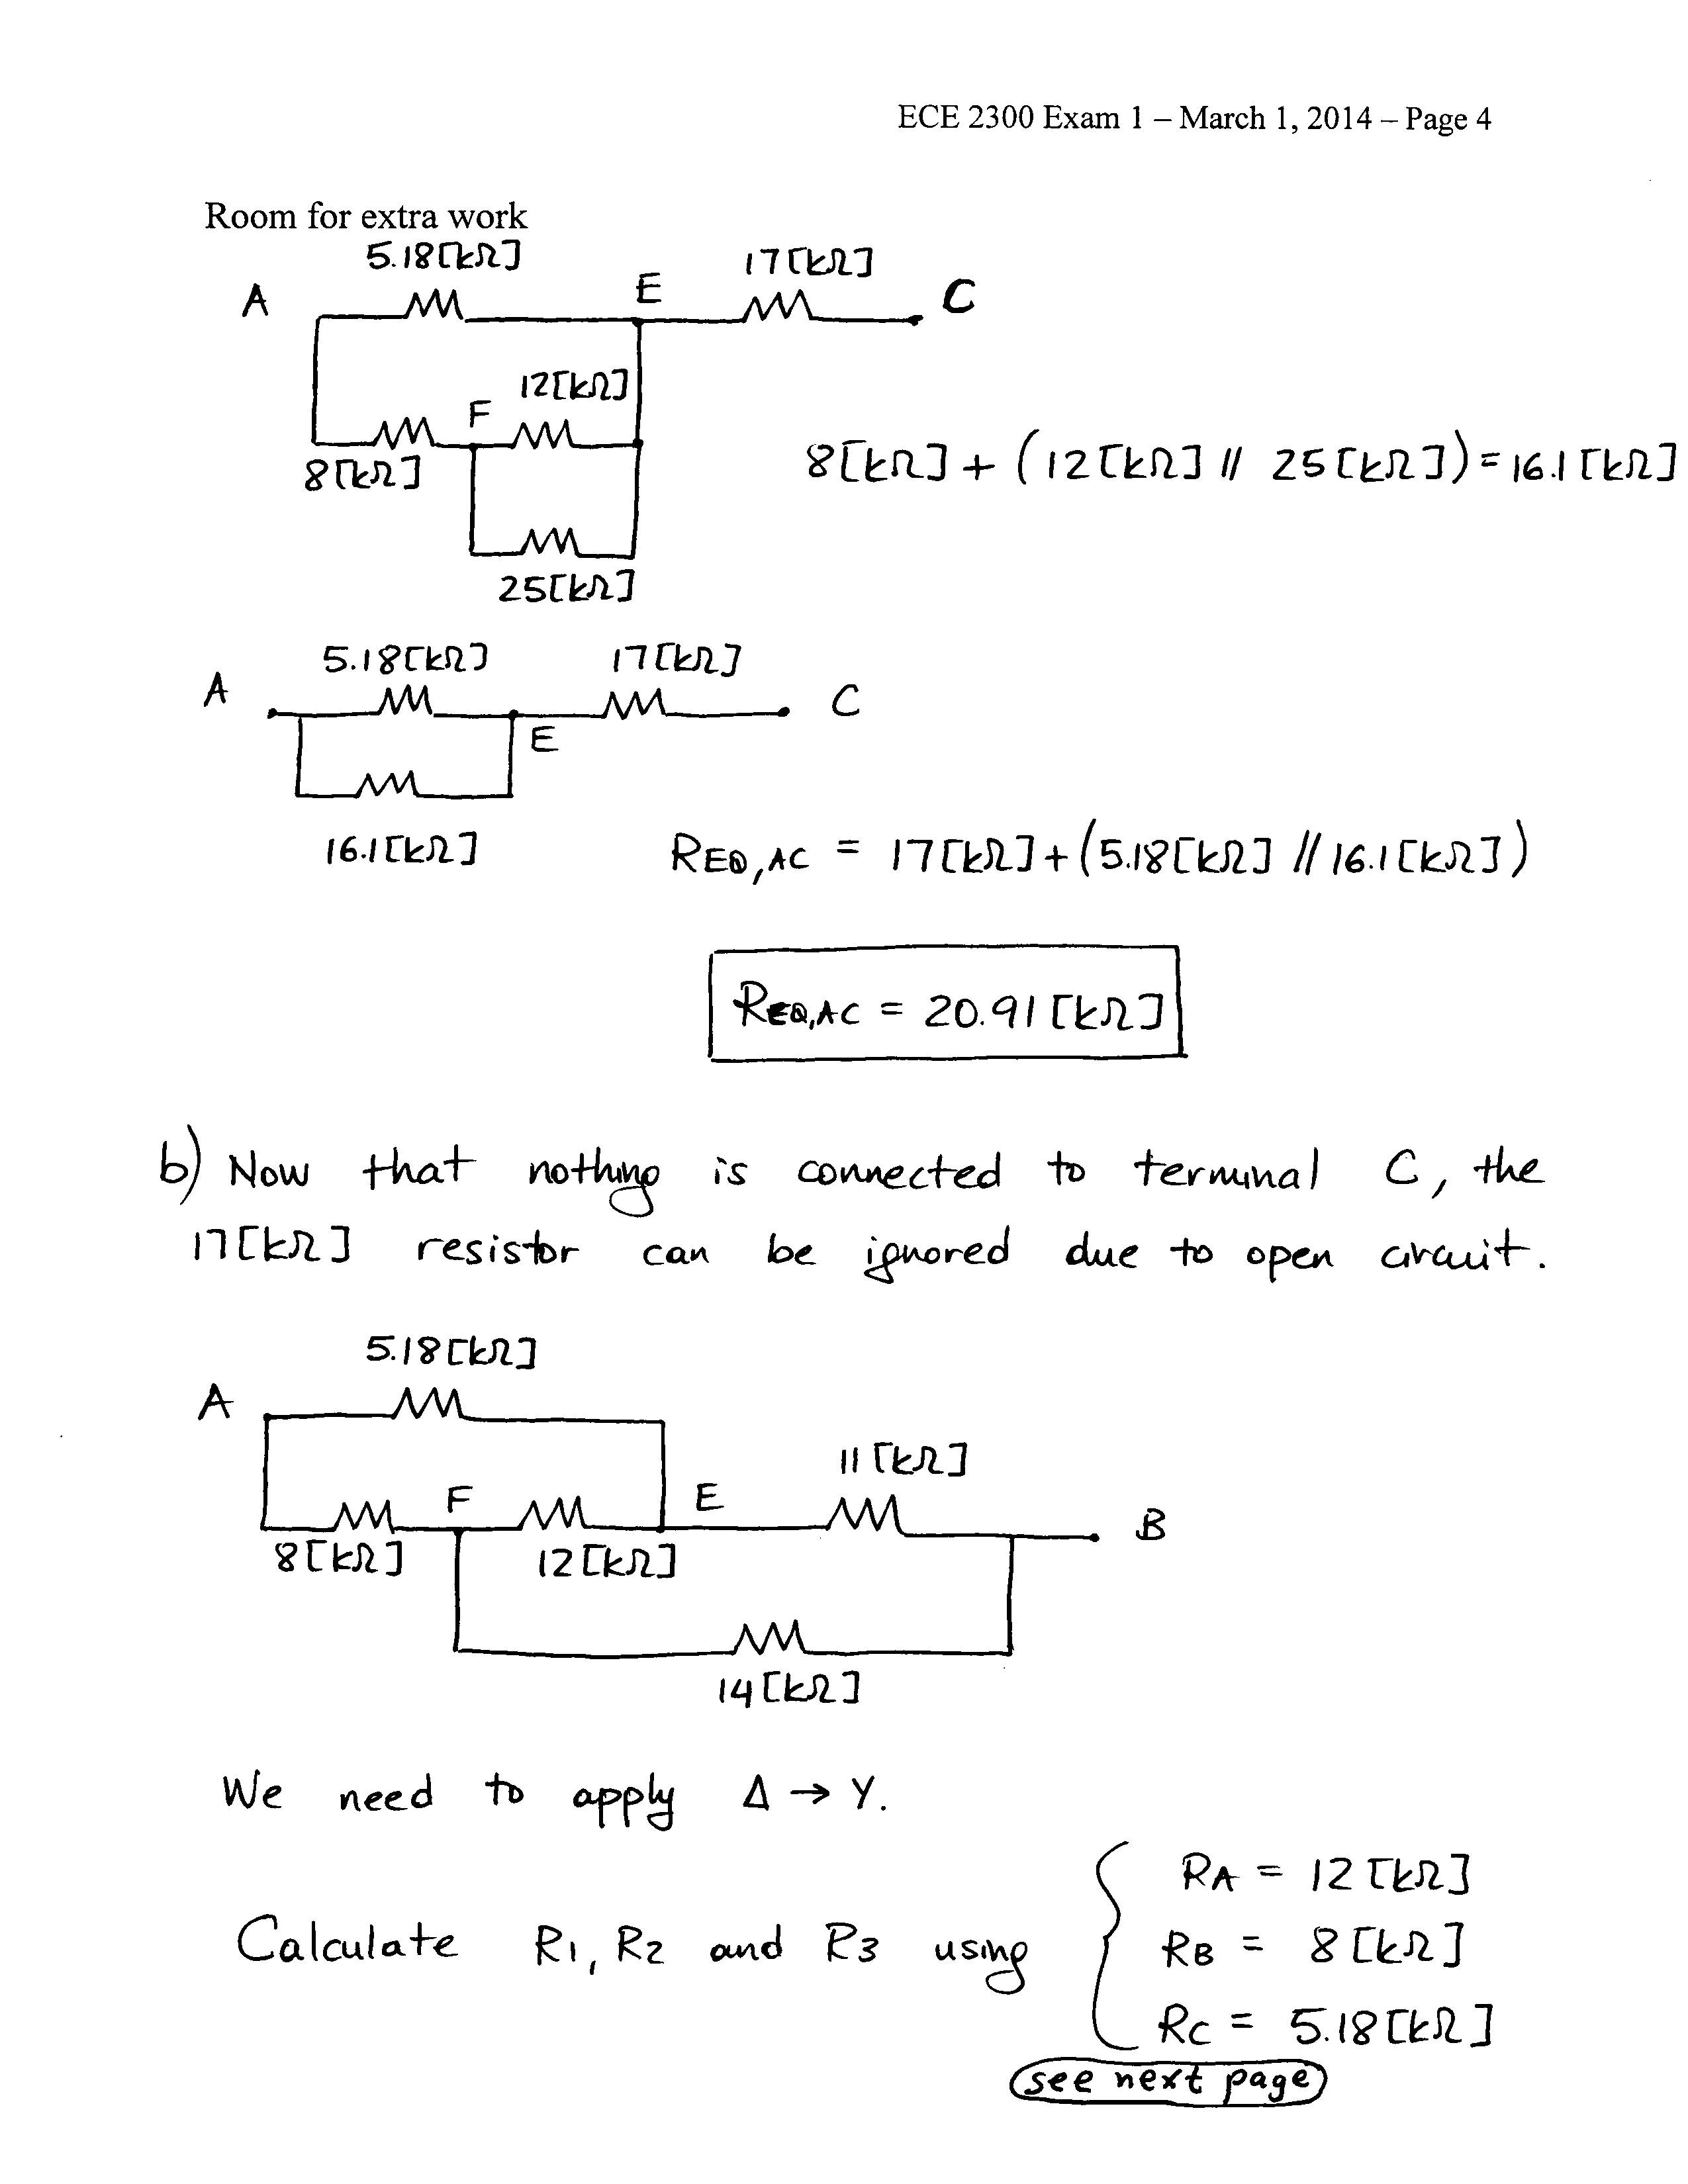 ECE 2300 Exam 1 – March 1, 2014 – Page 4
Room for extra work
5.18[kΩ]
17[kΩ]
A
E
C
12[kΩ]
F
8[kΩ]
8[kΩ] + (12[kΩ] // 25[kΩ]) = 16.1[kΩ]
25[kΩ]
5.18[kΩ]
17[kΩ]
A
C
E
16.1[kΩ]
REQ,AC = 17[kΩ] + (5.18[kΩ] // 16.1[kΩ])
REQ,AC = 20.91[kΩ]
b) Now that nothing is connected to terminal C, the
17[kΩ] resistor can be ignored due to open circuit.
5.18[kΩ]
A
11[kΩ]
F
E
B
8[kΩ]
12[kΩ]
14[kΩ]
We need to apply Δ → Y.
RA = 12[kΩ]
Calculate R1, R2 and R3 using
RB = 8[kΩ]
RC = 5.18[kΩ]
see next page